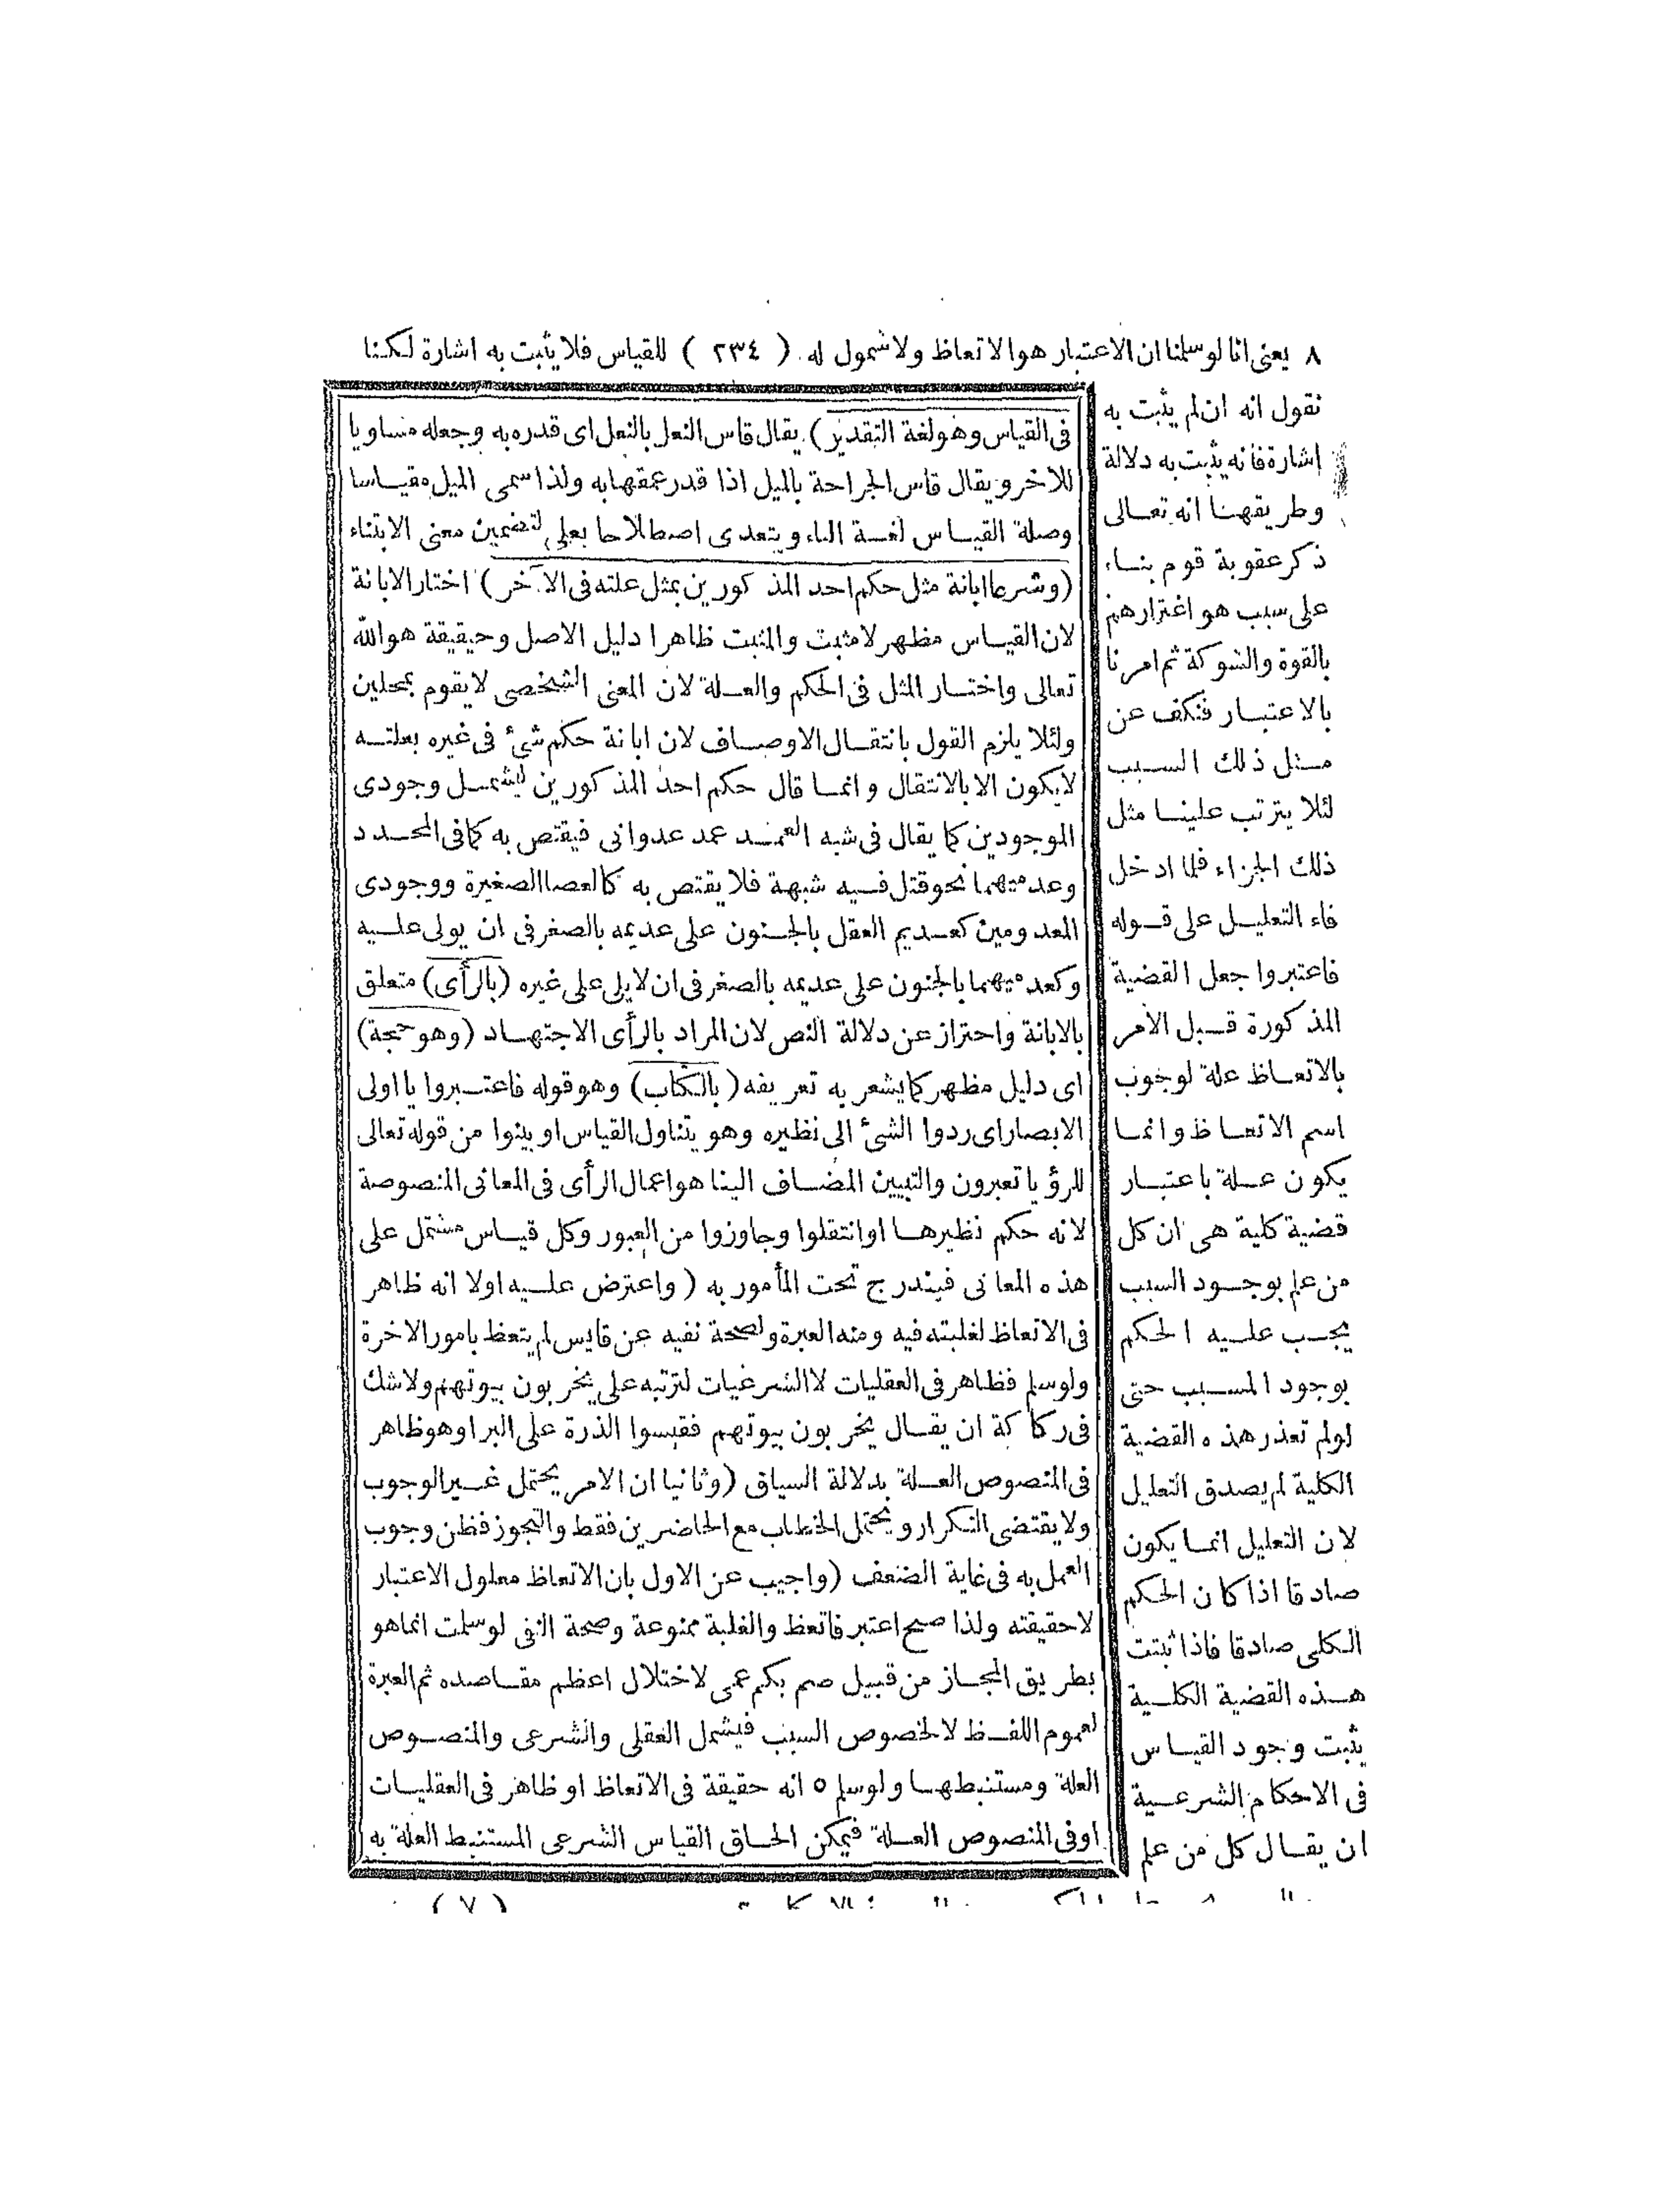 ٨ يعنى انا لو سلمنا ان الاعتبار هو الاتعاظ ولا شمول له ( ٢٣٤ ) للقياس فلا يثبت به اشارة لكنا
نقول انه ان لم يثبت به
اشارة فانه يثبت به دلالة
وطريقهنا انه تعالى
ذكر عقوبة قوم بناء
على سبب هو اغترارهم
بالقوة والشوكة ثم امرنا
بالاعتبار فنكف عن
مثل ذلك السبب
لئلا يترتب علينا مثل
ذلك الجزاء فلما ادخل
فاء التعليل على قوله
فاعتبروا جعل القضية
المذكورة قبل الامر
بالاتعاظ علة لوجوب
اسم الاتعاظ وانما
يكون علة باعتبار
قضية كلية هى ان كل
من علم بوجود السبب
يجب عليه الحكم
بوجود المسبب حتى
لو لم تعذر هذه القضية
الكلية لم يصدق التعليل
لان التعليل انما يكون
صادقا اذا كان الحكم
الكلى صادقا فاذا ثبتت
هذه القضية الكلية
يثبت وجود القياس
فى الاحكام الشرعية
ان يقال كل من علم
فى القياس وهو لغة التقدير ) يقال قاس النعل بالنعل اى قدره به وجعله مساويا
للاخر ويقال قاس الجراحة بالميل اذا قدر عمقها به ولذا سمى الميل مقياسا
وصلة القياس لغة الباء ويتعدى اصطلاحا بعلى لتضمين معنى الابتناء
(وشرعا ابانة مثل حكم احد المذكورين بمثل علته فى الآخر) اختار الابانة
لان القياس مظهر لا مثبت والمثبت ظاهرا دليل الاصل وحيقيقة هو الله
تعالى واختار المثل فى الحكم والعلة لان المعنى الشخصى لا يقوم بمحلين
ولئلا يلزم القول بانتقال الاوصاف لان ابانة حكم شئ فى غيره بعلته
لا يكون الا بالانتقال وانما قال حكم احد المذكورين ليشمل وجودى
الموجودين كما يقال فى شبه العمد عمد عدوانى فيقتص به كما فى المحدد
وعدميهما نحو قتل فيه شبهة فلا يقتص به كالعصا الصغيرة ووجودى
المعدومين كعديم العقل بالجنون على عديمه بالصغر فى ان يولى عليه
وكعدميهما بالجنون على عديمه بالصغر فى ان لا يلى على غيره (بالرأى) متعلق
بالابانة واحتراز عن دلالة النص لان المراد بالرأى الاجتهاد (وهو حجة)
اى دليل مظهر كما يشعر به تعريفه ( بالكتاب) وهو قوله فاعتبروا يا اولى
الابصار اى ردوا الشئ الى نظيره وهو يتناول القياس او بينوا من قوله تعالى
للرؤيا تعبرون والتبيين المضاف الينا هو اعمال الرأى فى المعانى المنصوصة
لانه حكم نظيرها او انتقلوا وجاوزوا من العبور وكل قياس مشتمل على
هذه المعانى فيندرج تحت المأمور به ( واعترض عليه اولا انه ظاهر
فى الاتعاظ لغلبته فيه ومنه العبرة ولصحة نفيه عن قايس لم يتعظ بامور الاخرة
ولو سلم فظاهر فى العقليات لا الشرعيات لترتبه على يخربون بيوتهم ولا شك
فى ركاكة ان يقال يخربون بيوتهم فقيسوا الذرة على البر او هو ظاهر
فى المنصوص العلة بدلالة السياق (وثانيا ان الامر يحتمل غير الوجوب
ولا يقتضى التكرار ويحتمل الخطاب مع الحاضرين فقط والتجوز فظن وجوب
العمل به فى غاية الضعف (واجيب عن الاول بان الاتعاظ معلول الاعتبار
لا حقيقته ولذا صح اعتبر فاتعظ والغلبة ممنوعة وصحة النفى لو سلمت انما هو
بطريق المجاز من قبيل صم بكم عمى لاختلال اعظم مقاصده ثم العبرة
لعموم اللفظ لا لخصوص السبب فيشمل العقلى والشرعى والمنصوص
العلة ومستنبطها ولو سلم ٥ انه حقيقة فى الاتعاظ او ظاهر فى العقليات
او فى المنصوص العلة فيمكن الحاق القياس الشرعى المستنبط العلة به
(٧)